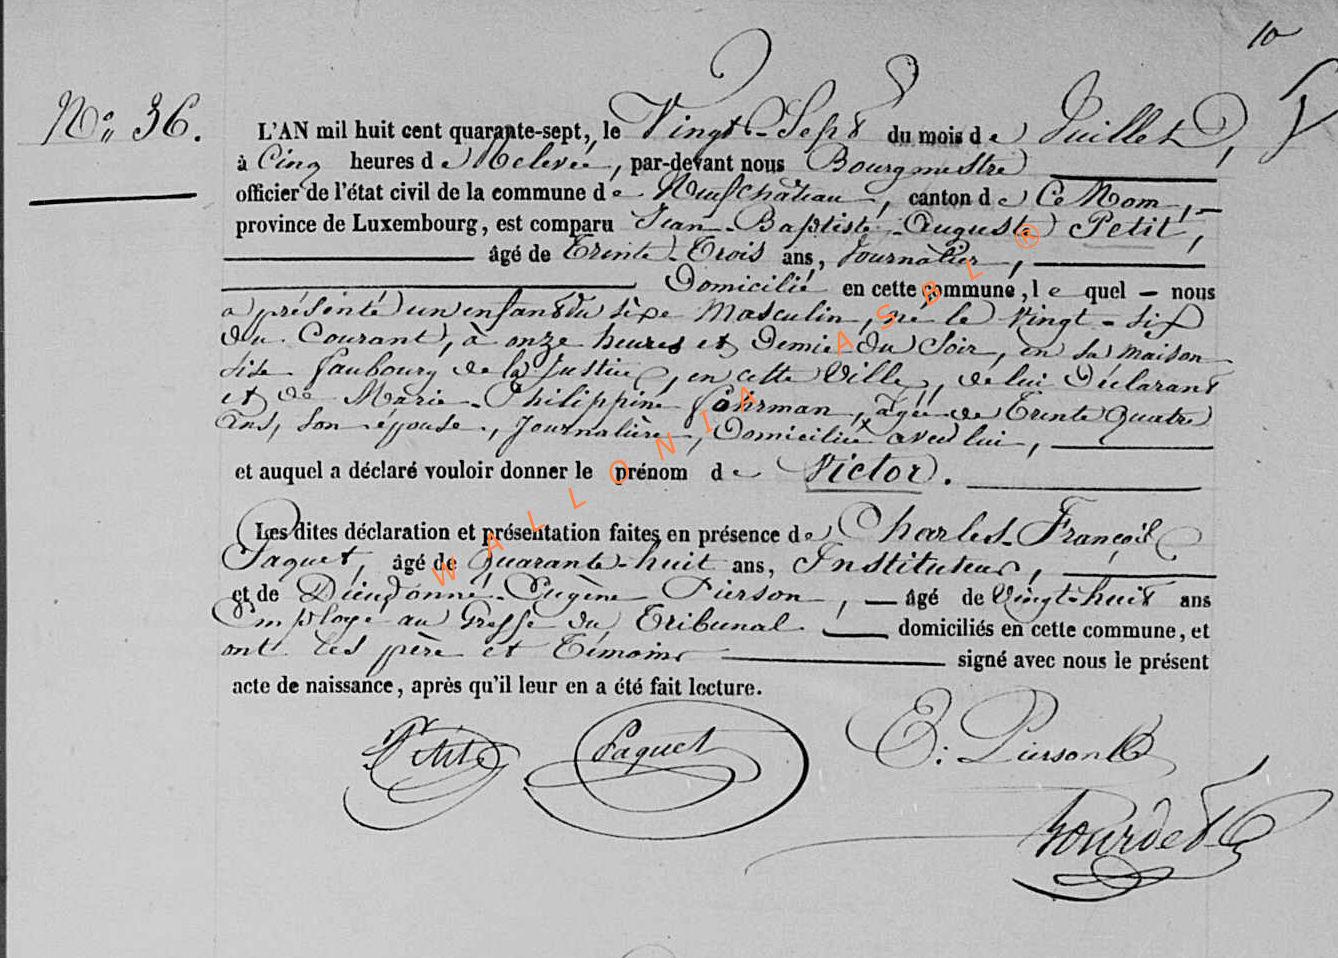 10
N° 36.
L'AN mil huit cent quarante-sept, le Vingt-Sept du mois de Juillet,
à Cinq heures de Relevée, par-devant nous Bourgmestre
officier de l'état civil de la commune de Neufchâteau, canton de Ce Nom,
province de Luxembourg, est comparu Jean-Baptiste-Auguste Petit,
âgé de Trente-Trois ans, Journalier,
Domicilié en cette commune, le quel nous
a présenté un enfant du sèxe Masculin, né le Vingt-Six
du Courant, à onze heures et Demie du Soir, en sa maison
sise faubourg de la Justice, en cette Ville, de lui Déclarant
et de Marie-Philippine, âgée de Trente Quatre
Ans, son épouse, Journalière, Domiciliée avec lui,
et auquel a déclaré vouloir donner le prénom de Victor.
Les dites déclaration et présentation faites en présence de Charles-François
Paquet, âgé de Quarante-huit ans, Instituteur,
et de Dieudonné-Eugène Pierson, âgé de Vingt-huit ans
Employé au Greffe du Tribunal domiciliés en cette commune, et
ont les père et Témoins signé avec nous le présent
acte de naissance, après qu'il leur en a été fait lecture.
Petit Paquet E: Pierson
Bourdet
WALLONIA ASBL ®